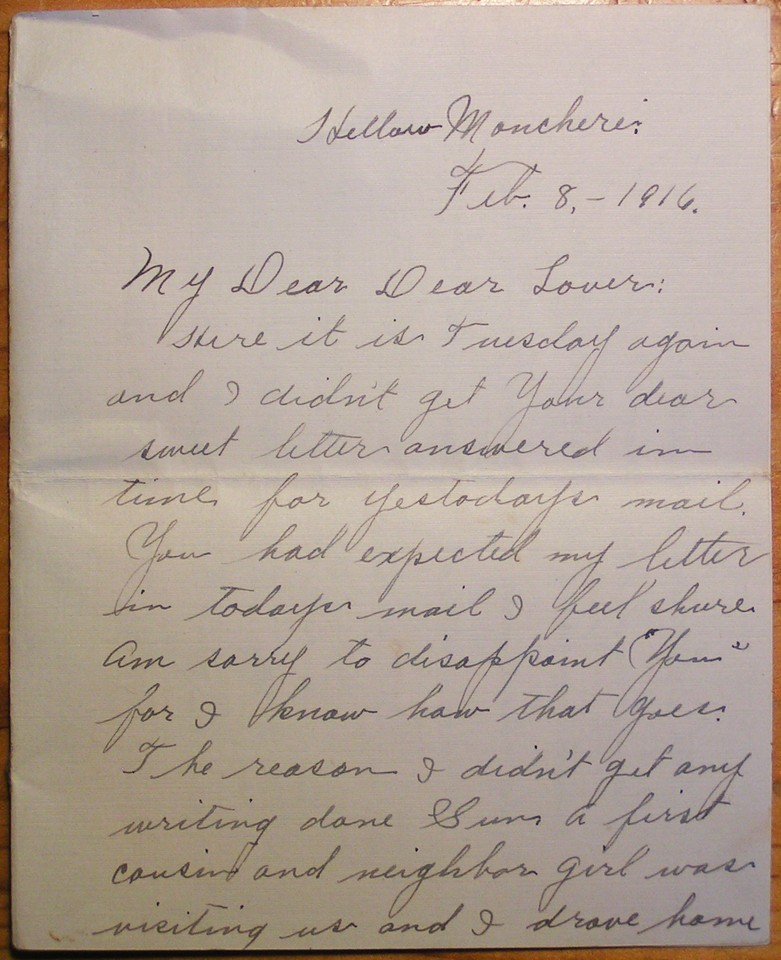 Hellow Moncheri:
Feb. 8, - 1916.
My Dear Dear Lover:
Here it is Tuesday again
and I didn't get Your dear
sweet letter answered in
time for yestodays mail.
You had expected my letter
in todays mail I feel shure
am sorry to disappoint "You"
for I know how that goes.
The reason I didn't get any
writing done Sun. a first
cousin and neighbor girl was
visiting us and I drove home